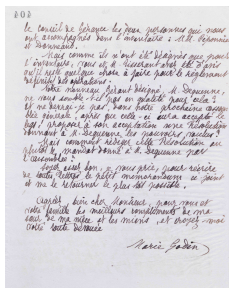 le conseil de gérance les deux personnes qui nous
ont accompagné dans l'inventaire : M.M. Pernin
et Donneaud.
Mais comme ils n'ont été désignés que pour
l'inventaire, nous et M. Tisserant ont été d'avis
qu'il reste quelque chose à faire pour le règlement
définitif des opérations.
Votre nouveau gérant désigné, M. Dequenne,
ne vous semble-t-il pas en qualité pour cela ?
et ne pourrai-je pas dans notre prochaine
assemblée générale, après que celle-ci aura accepté le
legs, proposer à son acceptation une Résolution
donnant à M. Dequenne les pouvoirs voulus ?
Mais comment rédiger cette Résolution ou
plutôt le mandat donné à M. Dequenne par
l'assemblée ?
Soyez assez bon, je vous prie, pour écrire
de tout cela le petit memorandum ci-joint
et me le retourner le plus tôt possible.
Agréez, bien cher Monsieur, pour vous et
votre famille les meilleurs compliments de ma
sœur, de ma nièce et les miens, et croyez-moi
votre toute dévouée
Marie Godin